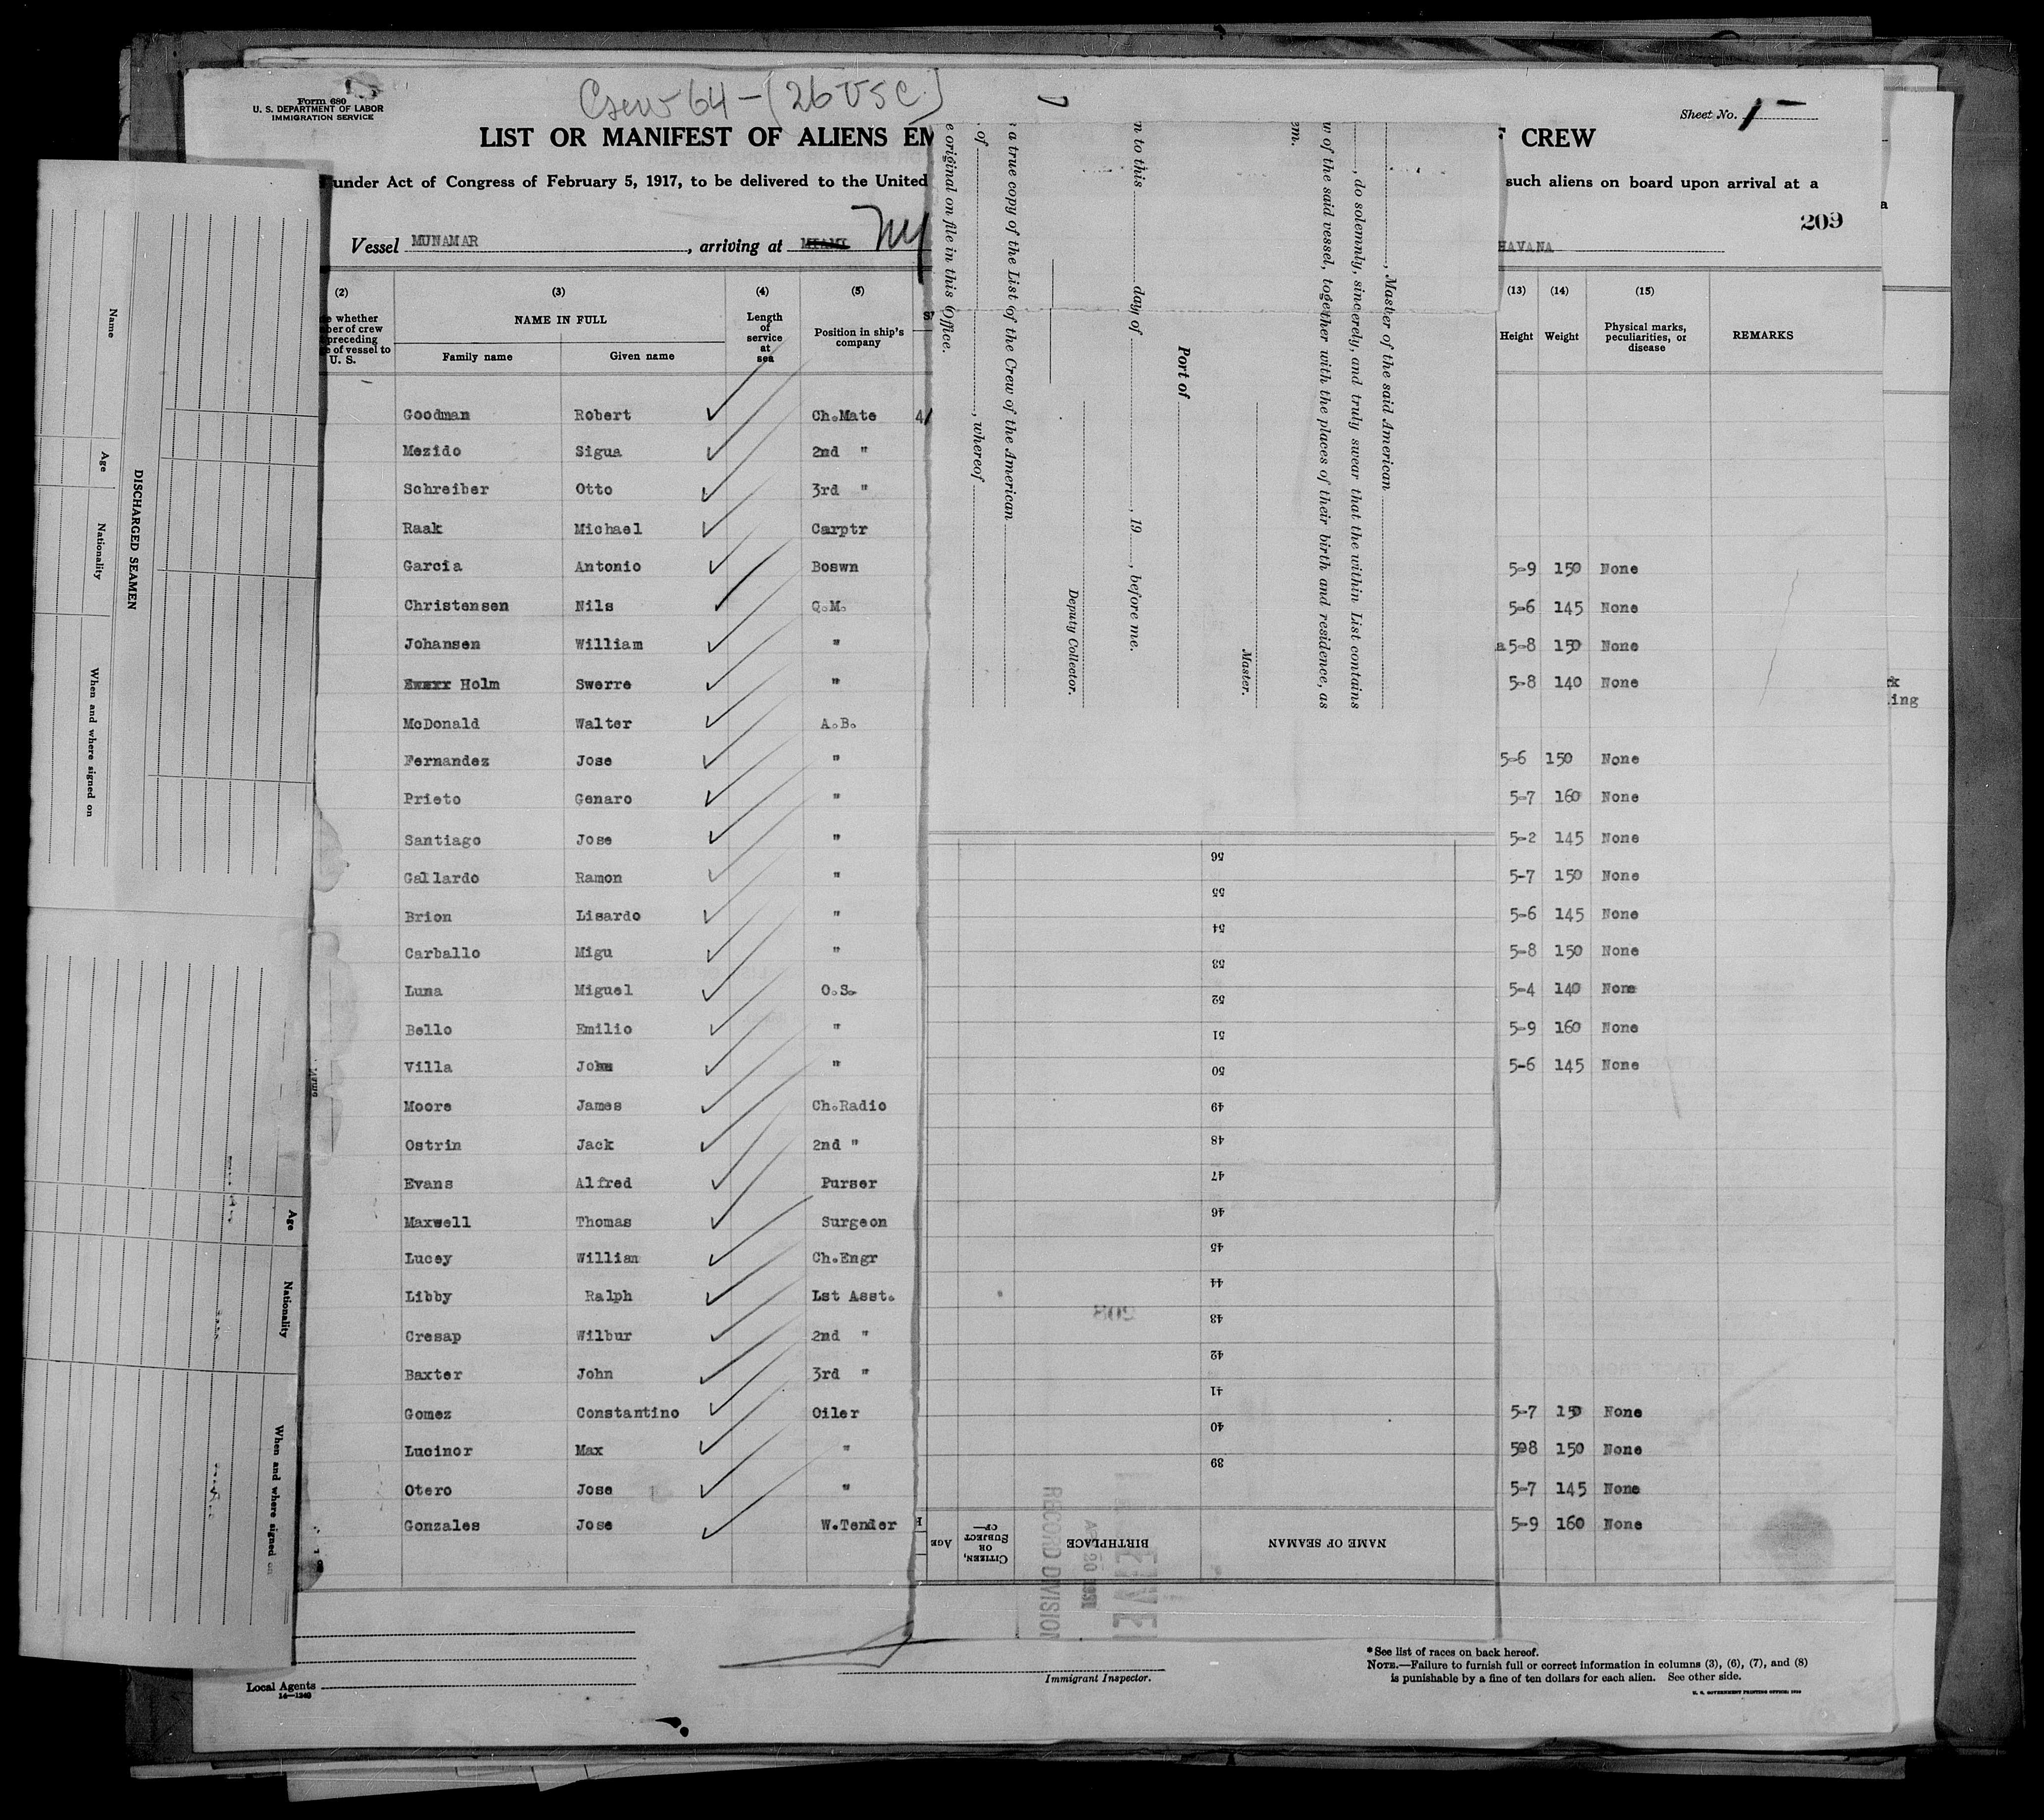 Crew 64 - (26 USC)
Form 680
U. S. DEPARTMENT OF LABOR
IMMIGRATION SERVICE
Sheet No. 1
LIST OR MANIFEST OF ALIENS EM
F CREW
under Act of Congress of February 5, 1917, to be delivered to the United
such aliens on board upon arrival at a
209
Vessel MUNAMAR, arriving at MIAMI NY
HAVANA
(2) (3) (4) (5) (13) (14) (15)
whether
ber of crew
preceding
of vessel to
U. S.
NAME IN FULL
Family name Given name
Length
of
service
at
sea
Position in ship's
company
Height Weight
Physical marks,
peculiarities, or
disease
REMARKS
Goodman Robert Ch.Mate 4/
Mezido Sigua 2nd "
Schreiber Otto 3rd "
Raak Michael Carptr
Garcia Antonio Boswn 5-9 150 None
Christensen Nils Q.M. 5-6 145 None
Johansen William " a 5-8 150 None
Holm Swerre " 5-8 140 None
McDonald Walter A.B.
Fernandez Jose " 5-6 150 None
Prieto Genaro " 5-7 160 None
Santiago Jose " 5-2 145 None
Gallardo Ramon " 5-7 150 None
Brion Lisardo " 5-6 145 None
Carballo Migu " 5-8 150 None
Luna Miguel O.S. 5-4 140 None
Bello Emilio " 5-9 160 None
Villa John " 5-6 145 None
Moore James Ch.Radio
Ostrin Jack 2nd "
Evans Alfred Purser
Maxwell Thomas Surgeon
Lucey William Ch.Engr
Libby Ralph Lst Asst.
Cresap Wilbur 2nd "
Baxter John 3rd "
Gomez Constantino Oiler 5-7 150 None
Lucinor Max " 5-8 150 None
Otero Jose " 5-7 145 None
Gonzales Jose W.Tender 5-9 160 None
Local Agents
14—1240
Immigrant Inspector.
*See list of races on back hereof.
NOTE.—Failure to furnish full or correct information in columns (3), (6), (7), and (8)
is punishable by a fine of ten dollars for each alien. See other side.
U. S. GOVERNMENT PRINTING OFFICE:
DISCHARGED SEAMEN
Name
Age
Nationality
When and where signed on
Age
Nationality
When and where signed on
, Master of the said American
, do solemnly, sincerely, and truly swear that the within List contains
w of the said vessel, together with the places of their birth and residence, as
em.
Master.
Port of
n to this day of , 19 , before me.
Deputy Collector.
a true copy of the List of the Crew of the American
of , whereof
e original on file in this Office.
NAME OF SEAMAN
BIRTHPLACE
CITIZEN,
OR
SUBJECT
OF—
AGE
39
40
41
42
43
44
45
46
47
48
49
50
51
52
53
54
55
56
208
EIVE
20 1931
RECORD DIVISION
ing